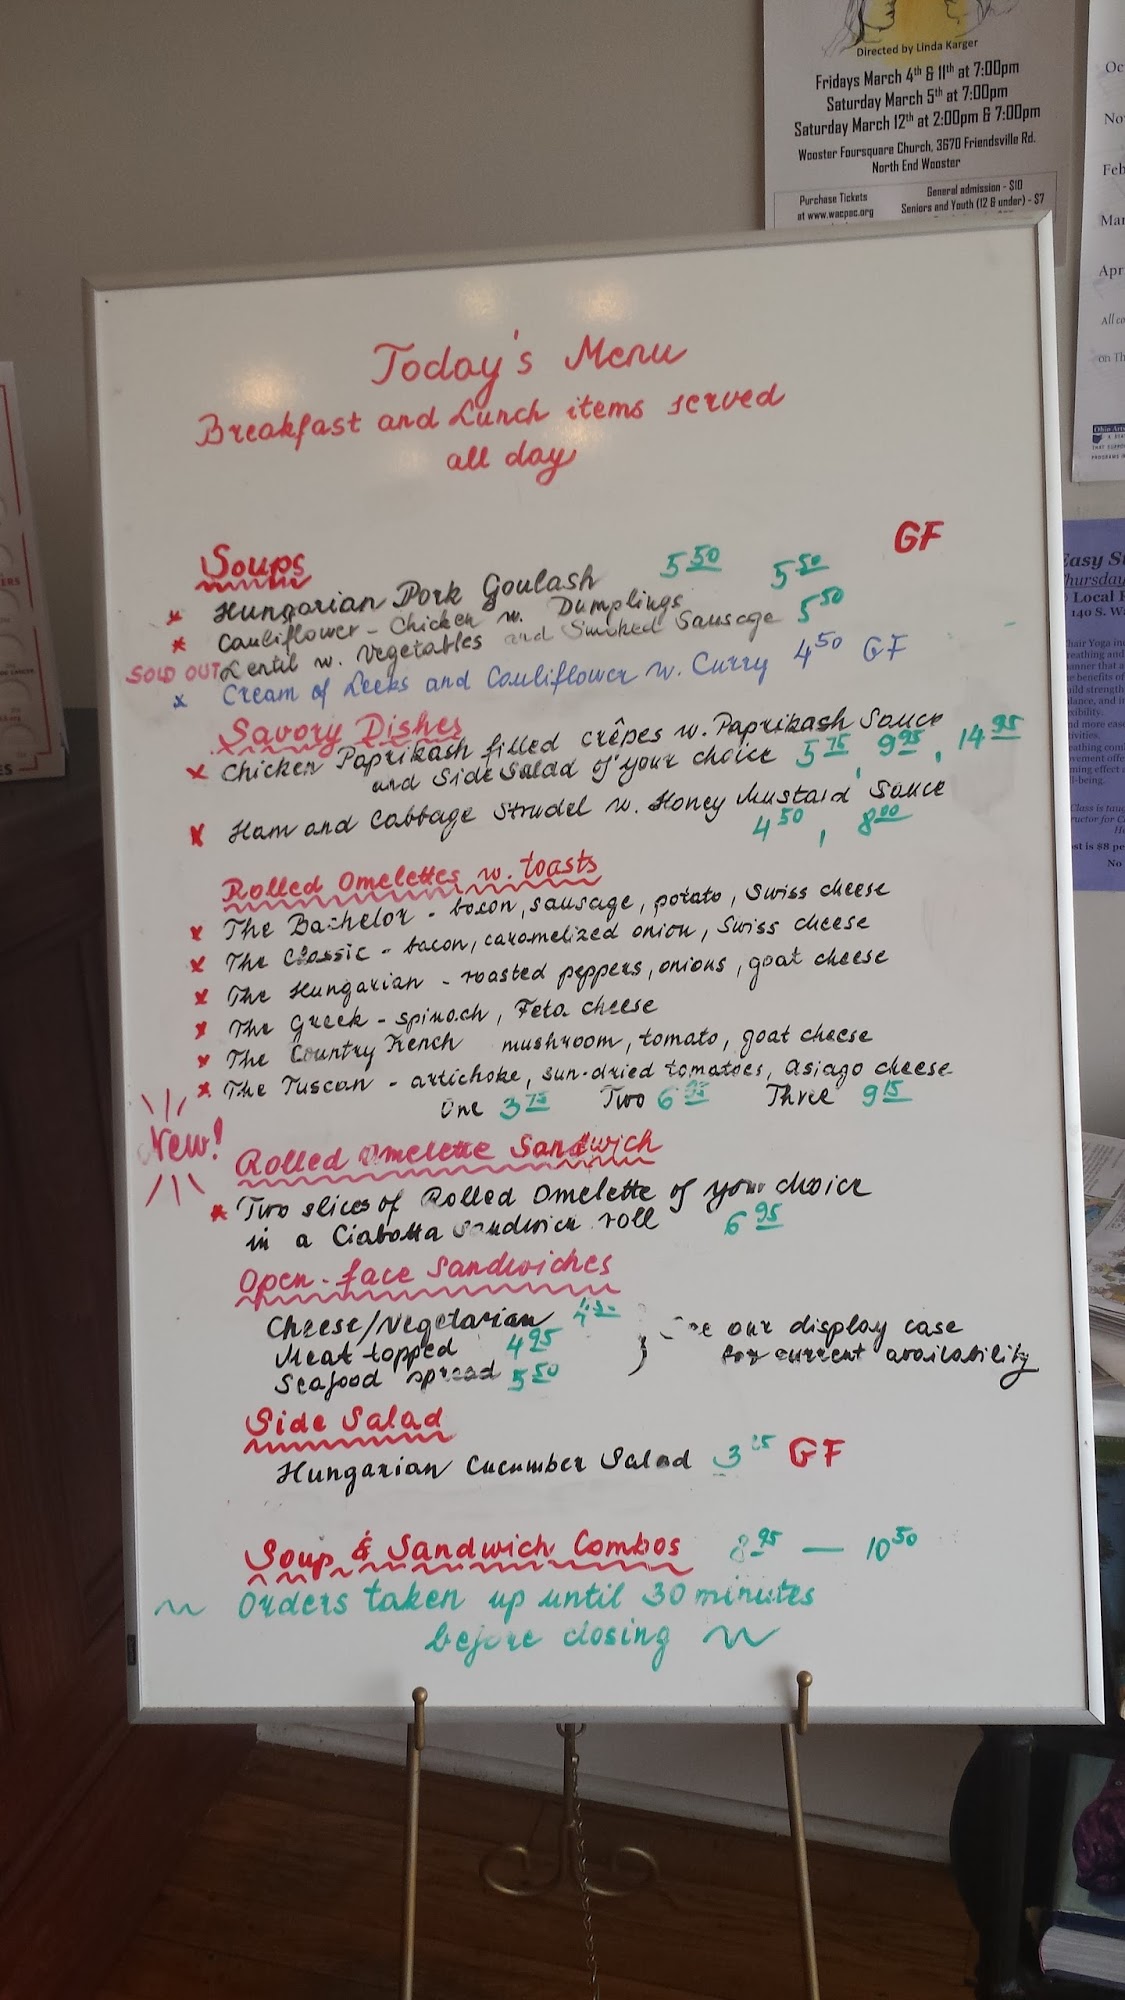 Directed by Linda Karger
Fridays March 4th & 11th at 7:00pm
Saturday March 5th at 7:00pm
Saturday March 12th at 2:00pm & 7:00pm
Wooster Foursquare Church, 3670 Friendsville Rd.
North End Wooster
Purchase Tickets
at www.wacpac.org
General admission - $10
Seniors and Youth (12 & under) - $7
Today's Menu
Breakfast and Lunch items served
all day
GF
Soups
* Hungarian Pork Goulash 5 50
* Cauliflower - Chicken w. Dumplings 5 50
SOLD OUT Lentil w. Vegetables and Smoked Sausage 5 50
x Cream of Leeks and Cauliflower w. Curry 4 50 GF
Savory Dishes
x Chicken Paprikash filled crêpes w. Paprikash Sauce
and Side Salad of your choice 5 75, 9 95, 14 95
x Ham and Cabbage Strudel w. Honey Mustard Sauce
4 50, 8 00
Rolled Omelettes w. toasts
x The Bachelor - bacon, sausage, potato, Swiss cheese
x The Classic - bacon, caramelized onion, Swiss cheese
x The Hungarian - roasted peppers, onions, goat cheese
x The Greek - spinach, Feta cheese
x The Country French mushroom, tomato, goat cheese
x The Tuscan - artichoke, sun-dried tomatoes, Asiago cheese
One 3 75 Two 6 Three 9 15
New!
Rolled Omelette Sandwich
* Two slices of Rolled Omelette of your choice
in a Ciabatta Sandwich roll 6 95
Open-face Sandwiches
Cheese/Vegetarian
Meat topped 4 95
Seafood spread 5 50
} See our display case
for current availability
Side Salad
Hungarian Cucumber Salad 3 GF
Soup & Sandwich Combos 8 95 — 10 50
~ Orders taken up until 30 minutes
before closing ~
Oc
No
Feb
Mar
Apr
All co
on Th
Easy S
Thursday
Local
140 S. W
Chair Yoga
No